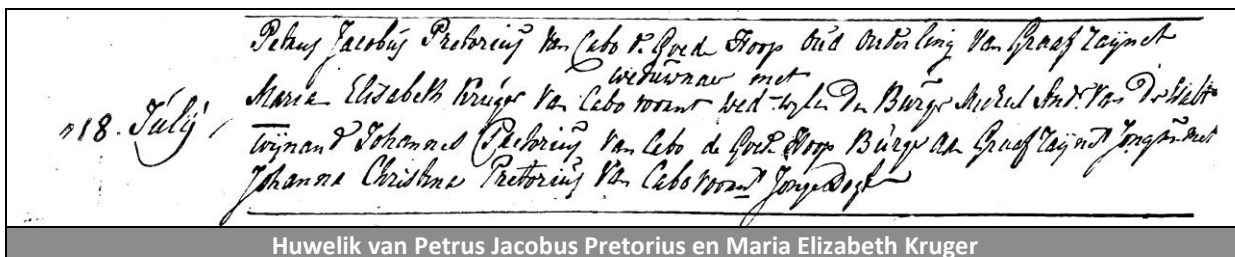 Petrus Jacobus Pretorius van Cabo de Goede Hoop Oud Ouderling van Graaf Raijnet
weduwnaar met
Maria Elisabeth Kruger van Cabo voornt wed. wijle den Burger Michiel And. van
d' 18. Julij
Wijnand Johannes Pretorius van Cabo de Goede Hoop Burger aan Graaf Raijnet Jongm. met
Johanna Christina Pretorius van Cabo voornt Jonge Dogt
Huwelik van Petrus Jacobus Pretorius en Maria Elizabeth Kruger